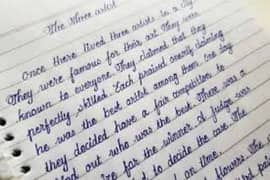 The three artist
Once there lived three artists in a city.
They were famous for their art. They were
known to everyone. They claimed that they
perfectly skilled. Each praised
he was the best artist among them. One day
they decided have a fair competition to
find out who was the best. There was a
for the winner. A judge was
to decide the case. The
on time.
flowers. The